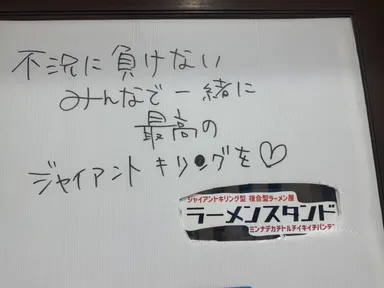 不況に負けない
みんなで一緒に
最高の
ジャイアントキリングを♡
ジャイアントキリング型 複合型ラーメン屋
ラーメンスタンド
ミンナデカチトルチイキイチバンテ